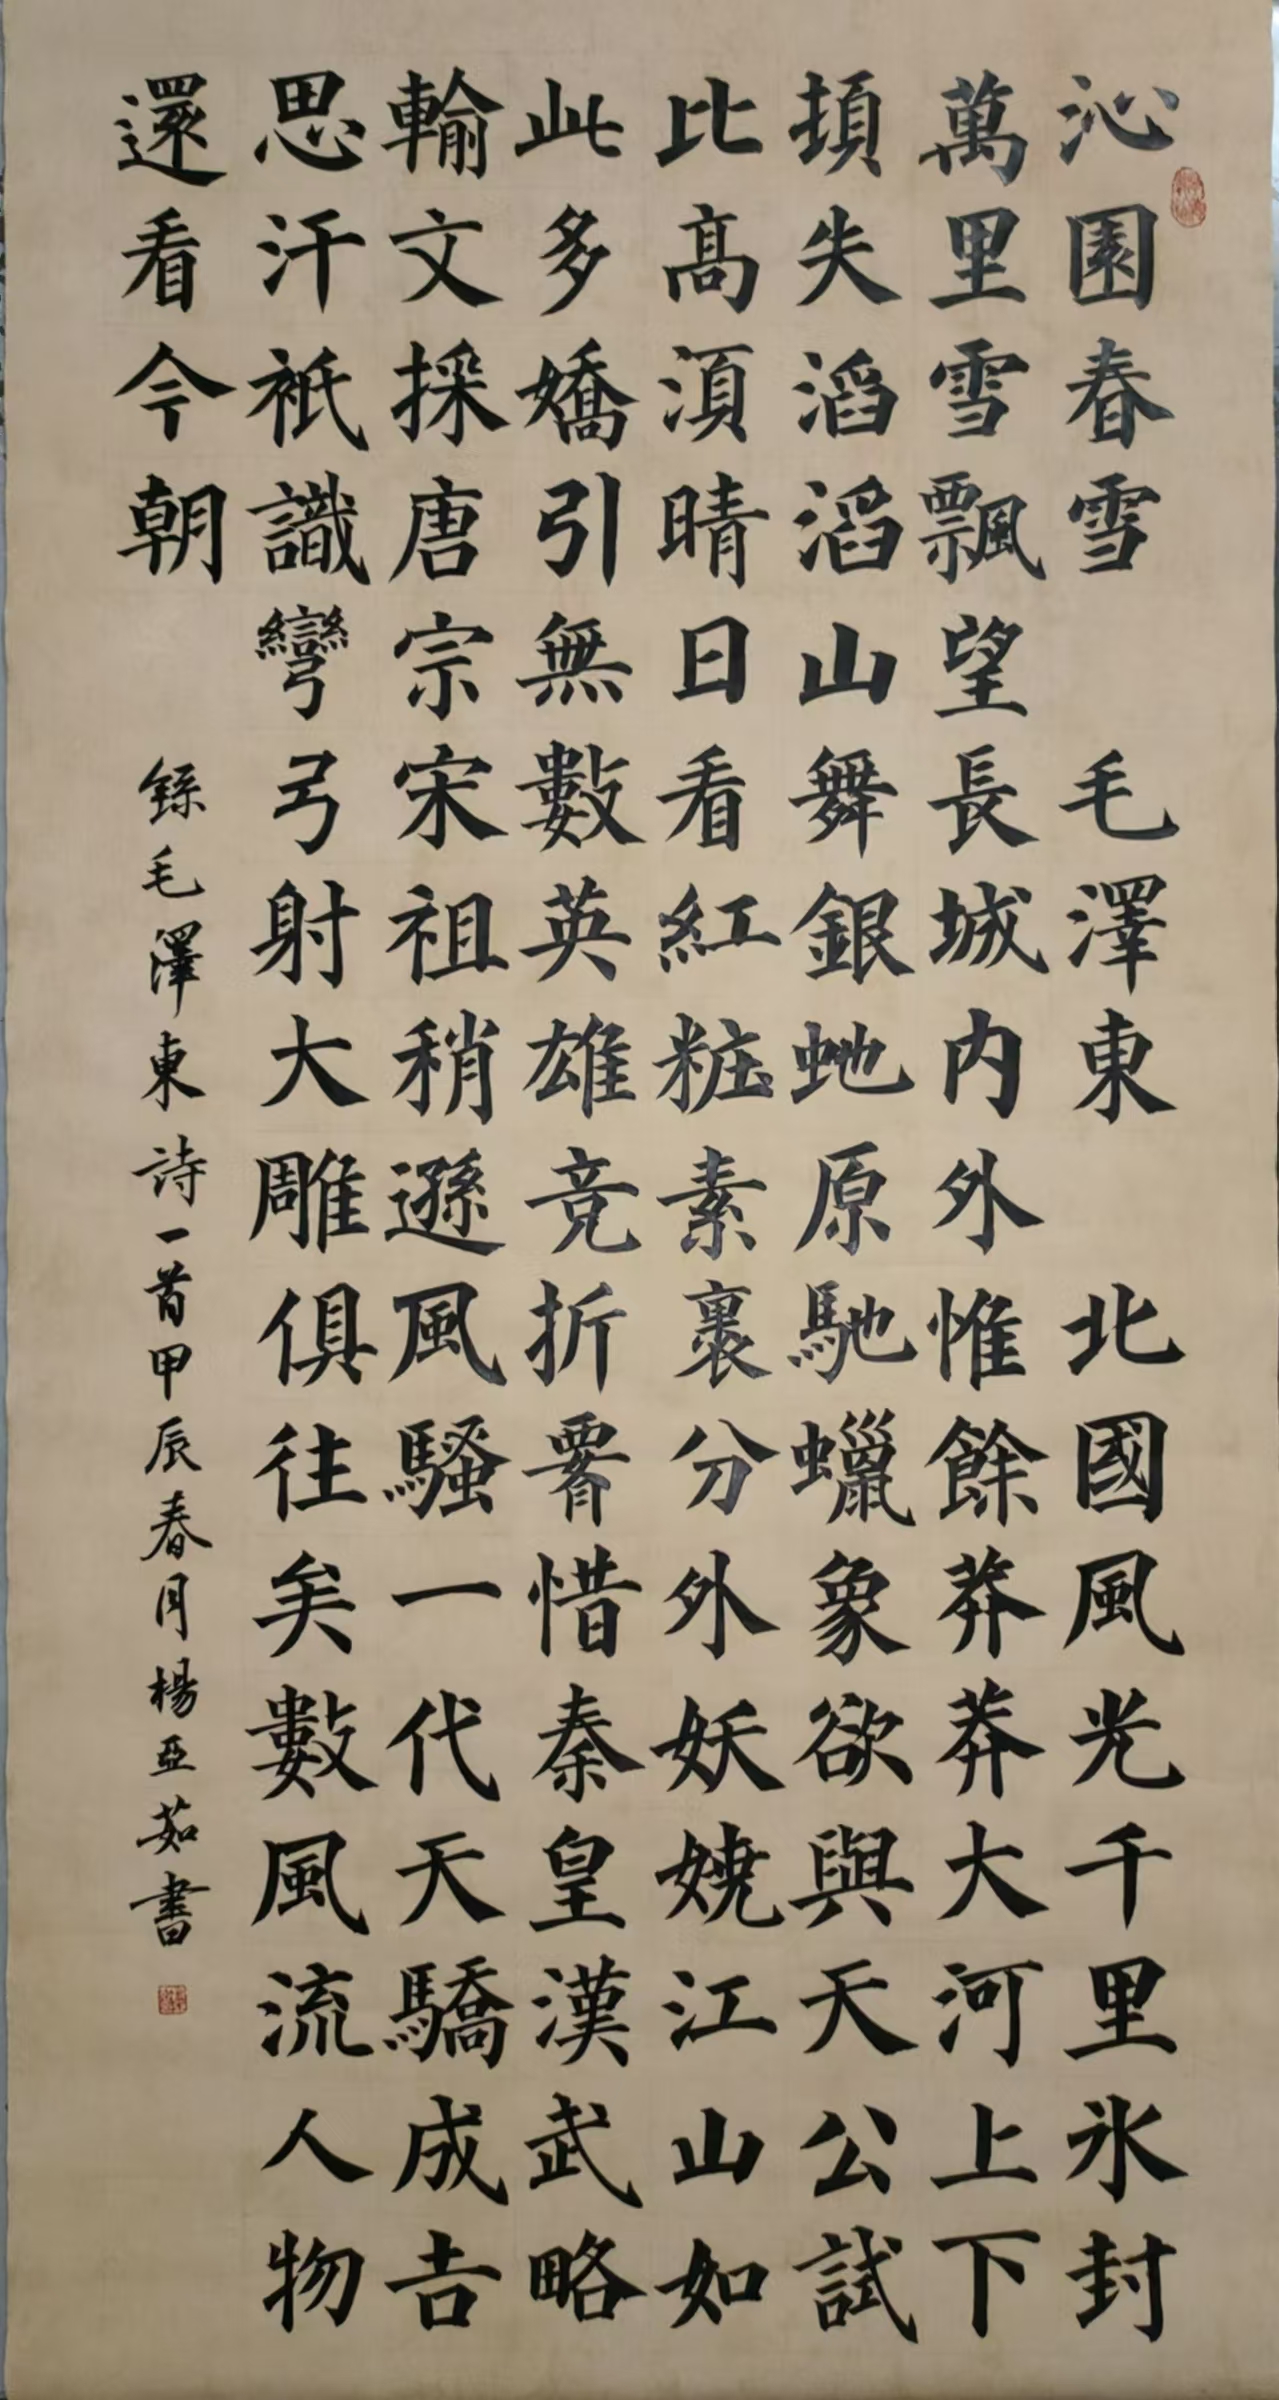 沁園春雪 毛澤東 北國風光千里氷封
萬里雪飄望長城内外惟餘莽莽大河上下
頓失滔滔山舞銀虵原馳蠟象欲與天公試
比髙湏晴日看紅粧素裹分外妖嬈江山如
此多嬌引無數英雄竞折𦝫惜秦皇漢武略
輸文採唐宗宋祖稍遜風騷一代天驕成吉
思汗衹識彎弓射大雕俱往矣數風流人物
還看今朝
錄毛澤東詩一首甲辰春月楊亞茹書